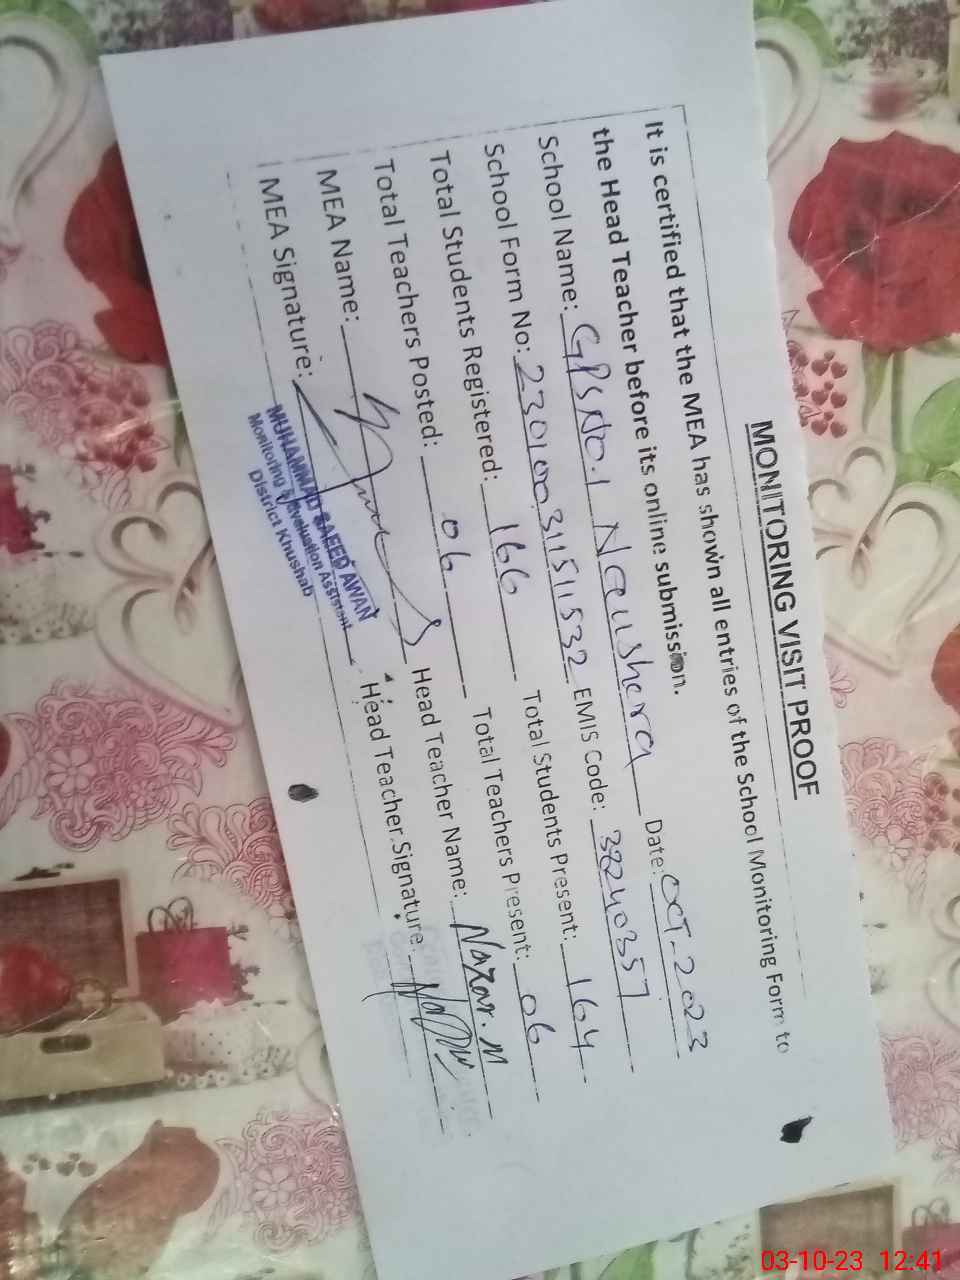 MONITORING VISIT PROOF
It is certified that the MEA has shown all entries of the School Monitoring Form to
the Head Teacher before its online submission.
School Name: GPS No.1 Naushera Date: OCT-2023
School Form No: 230100311511532 EMIS Code: 38240357
Total Students Registered: 166 Total Students Present: 164
Total Teachers Posted: 06 Total Teachers Present: 06
MEA Name: Head Teacher Name: Nazar.M
MEA Signature: Head Teacher Signature:
MUHAMMAD SAEED AWAN
Monitoring & Evaluation Assistant
District Khushab
03-10-23 12:41